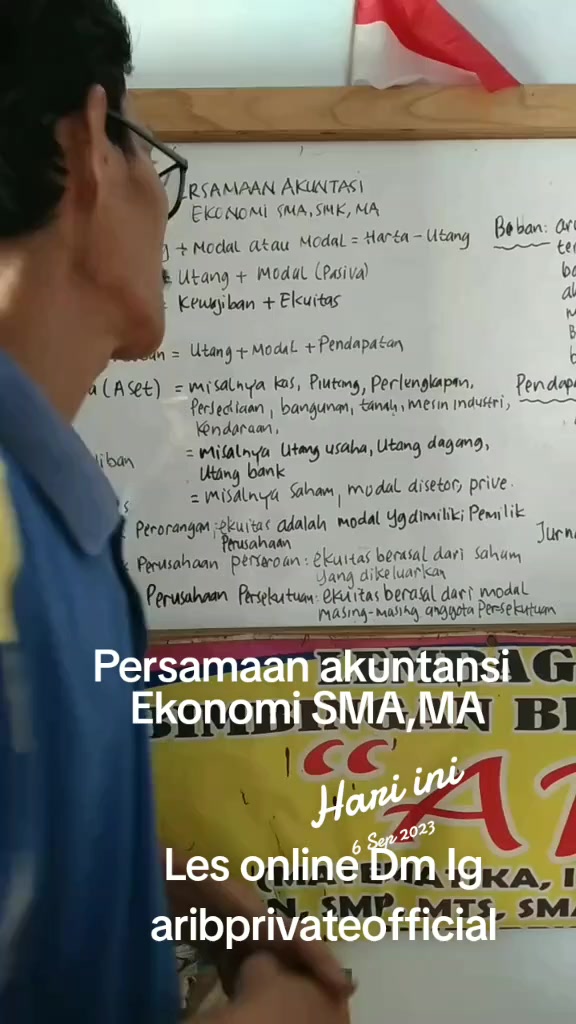 RSAMAAN AKUNTASI
EKONOMI SMA, SMK, MA
g + Modal atau Modal = Harta - Utang
= Utang + Modal (Pasiva)
= Kewajiban + Ekuitas
an = Utang + Modal + Pendapatan
a (Aset) = misalnya kas, Piutang, Perlengkapan,
Persediaan, bangunan, tanah, mesin industri,
Kendaraan,
iban = misalnya Utang usaha, Utang dagang,
Utang bank
s = misalnya saham, modal disetor, prive.
Perorangan: ekuitas adalah modal yg dimiliki Pemilik
Perusahaan
Perusahaan perseroan: ekuitas berasal dari saham
yang dikeluarkan
Perusahaan Persekutuan: ekuitas berasal dari modal
masing-masing anggota Persekutuan
Beban: aru
ter
ba
ak
b
Pendapa
Jurna
Persamaan akuntansi
Ekonomi SMA,MA
LEMBAG
BIMBINGAN BE
"A
Hari ini
6 Sep 2023
Les online Dm Ig
aribprivateofficial
(MATEMATIKA, I
N, SMP, MTS, SMA